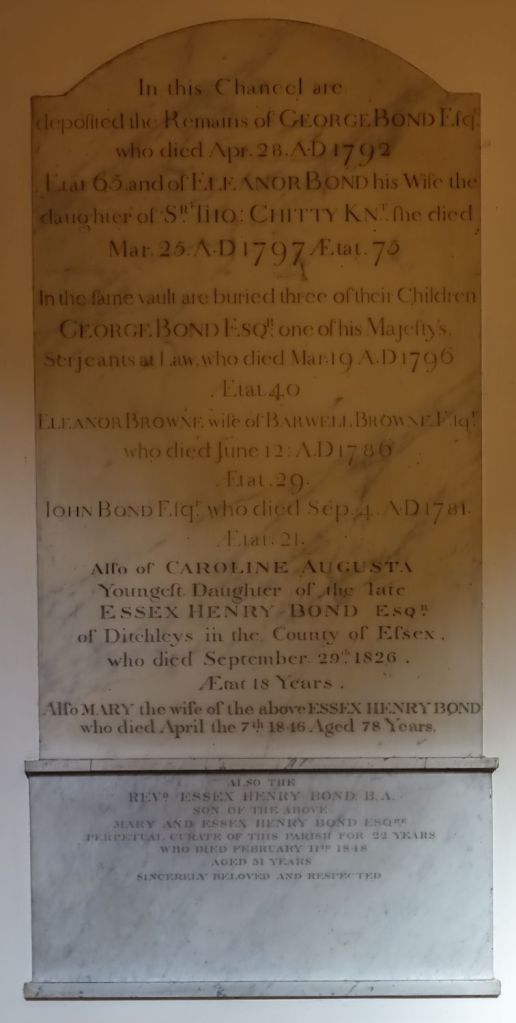 In this Chancel are
deposited the Remains of GEORGE BOND Esqr.
who died Apr. 28. A.D 1792
Ætat 65. and of ELEANOR BOND his Wife the
daughter of Sr. THO: CHITTY KNT. she died
Mar. 25. A.D 1797 Ætat. 75
In the same vault are buried three of their Children
GEORGE BOND ESQR. one of his Majesty's.
Serjeants at Law, who died Mar. 19 A.D 1796
Ætat. 40
ELEANOR BROWNE wife of BARWELL BROWNE Esqr.
who died June 12: A.D 1786
Ætat. 29.
IOHN BOND Esqr. who died Sep. 4. A.D 1781.
Ætat. 21.
Also of CAROLINE AUGUSTA
Youngest Daughter of the late
ESSEX HENRY BOND ESQR.
of Ditchleys in the County of Essex,
who died September. 29th. 1826.
Ætat 18 Years.
Also MARY the wife of the above ESSEX HENRY BOND
who died April the 7th 1846 Aged 78 Years.
ALSO THE
REVD. ESSEX HENRY BOND. B.A.
SON OF THE ABOVE
MARY AND ESSEX HENRY BOND ESQRE
PERPETUAL CURATE OF THIS PARISH FOR 22 YEARS
WHO DIED FEBRUARY 11TH 1848
AGED 51 YEARS
SINCERELY BELOVED AND RESPECTED